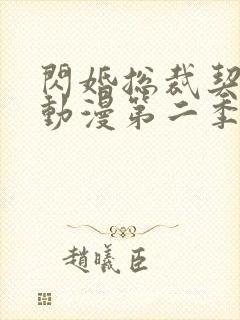 閃婚総裁契
動漫第二季
趙曦臣